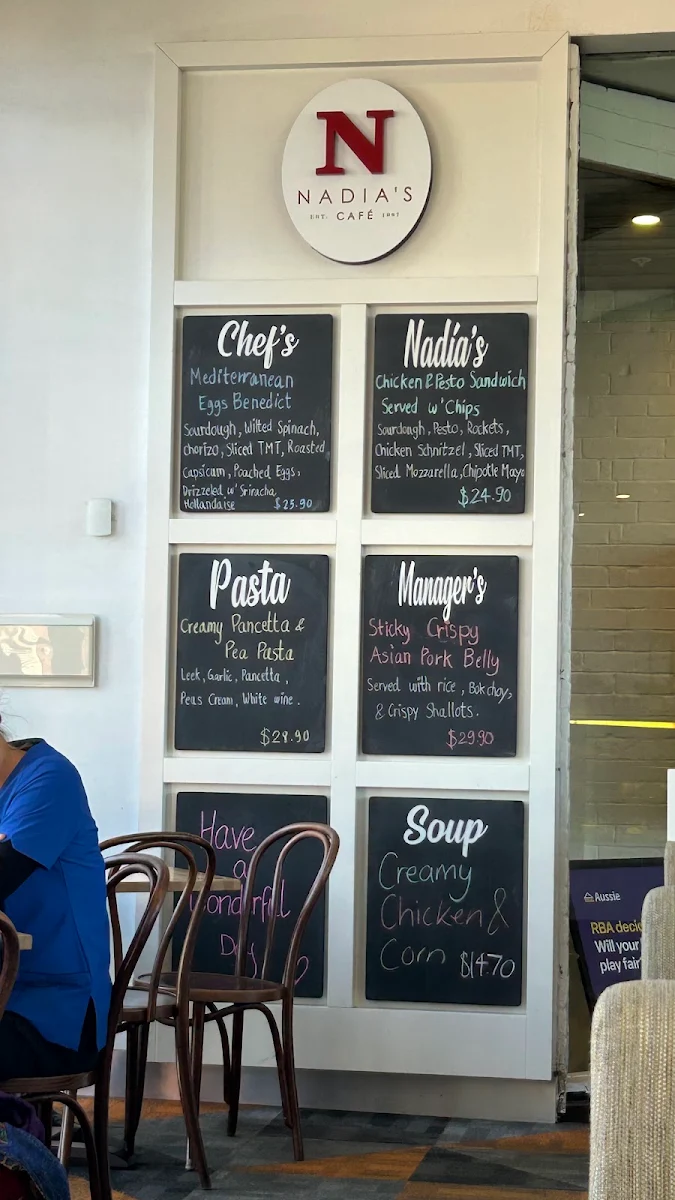 N
NADIA'S
EST. CAFÉ 1997
Chef's
Mediterranean
Eggs Benedict
Sourdough, Wilted Spinach,
Chorizo, Sliced TMT, Roasted
Capsicum, Poached Eggs,
Drizzeled w' Sriracha
Hollandaise $23.90
Nadia's
Chicken & Pesto Sandwich
Served w' Chips
Sourdough, Pesto, Rockets,
Chicken Schnitzel, Sliced TMT,
Sliced Mozzarella, Chipotle Mayo
$24.90
Pasta
Creamy Pancetta &
Pea Pasta
Leek, Garlic, Pancetta,
Peas Cream, White wine.
$28.90
Manager's
Sticky Crispy
Asian Pork Belly
Served with rice, Bok choy,
& Crispy Shallots.
$29.90
Have
a
wonderful
Day
Soup
Creamy
Chicken &
Corn $14.70
Aussie
RBA
Will your
play fair